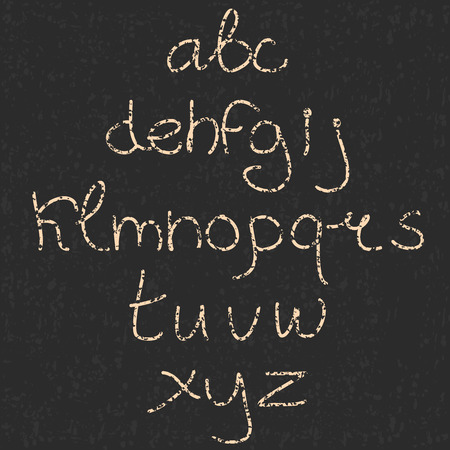 abc
dehfgij
klmnopqrs
tuvw
xyz